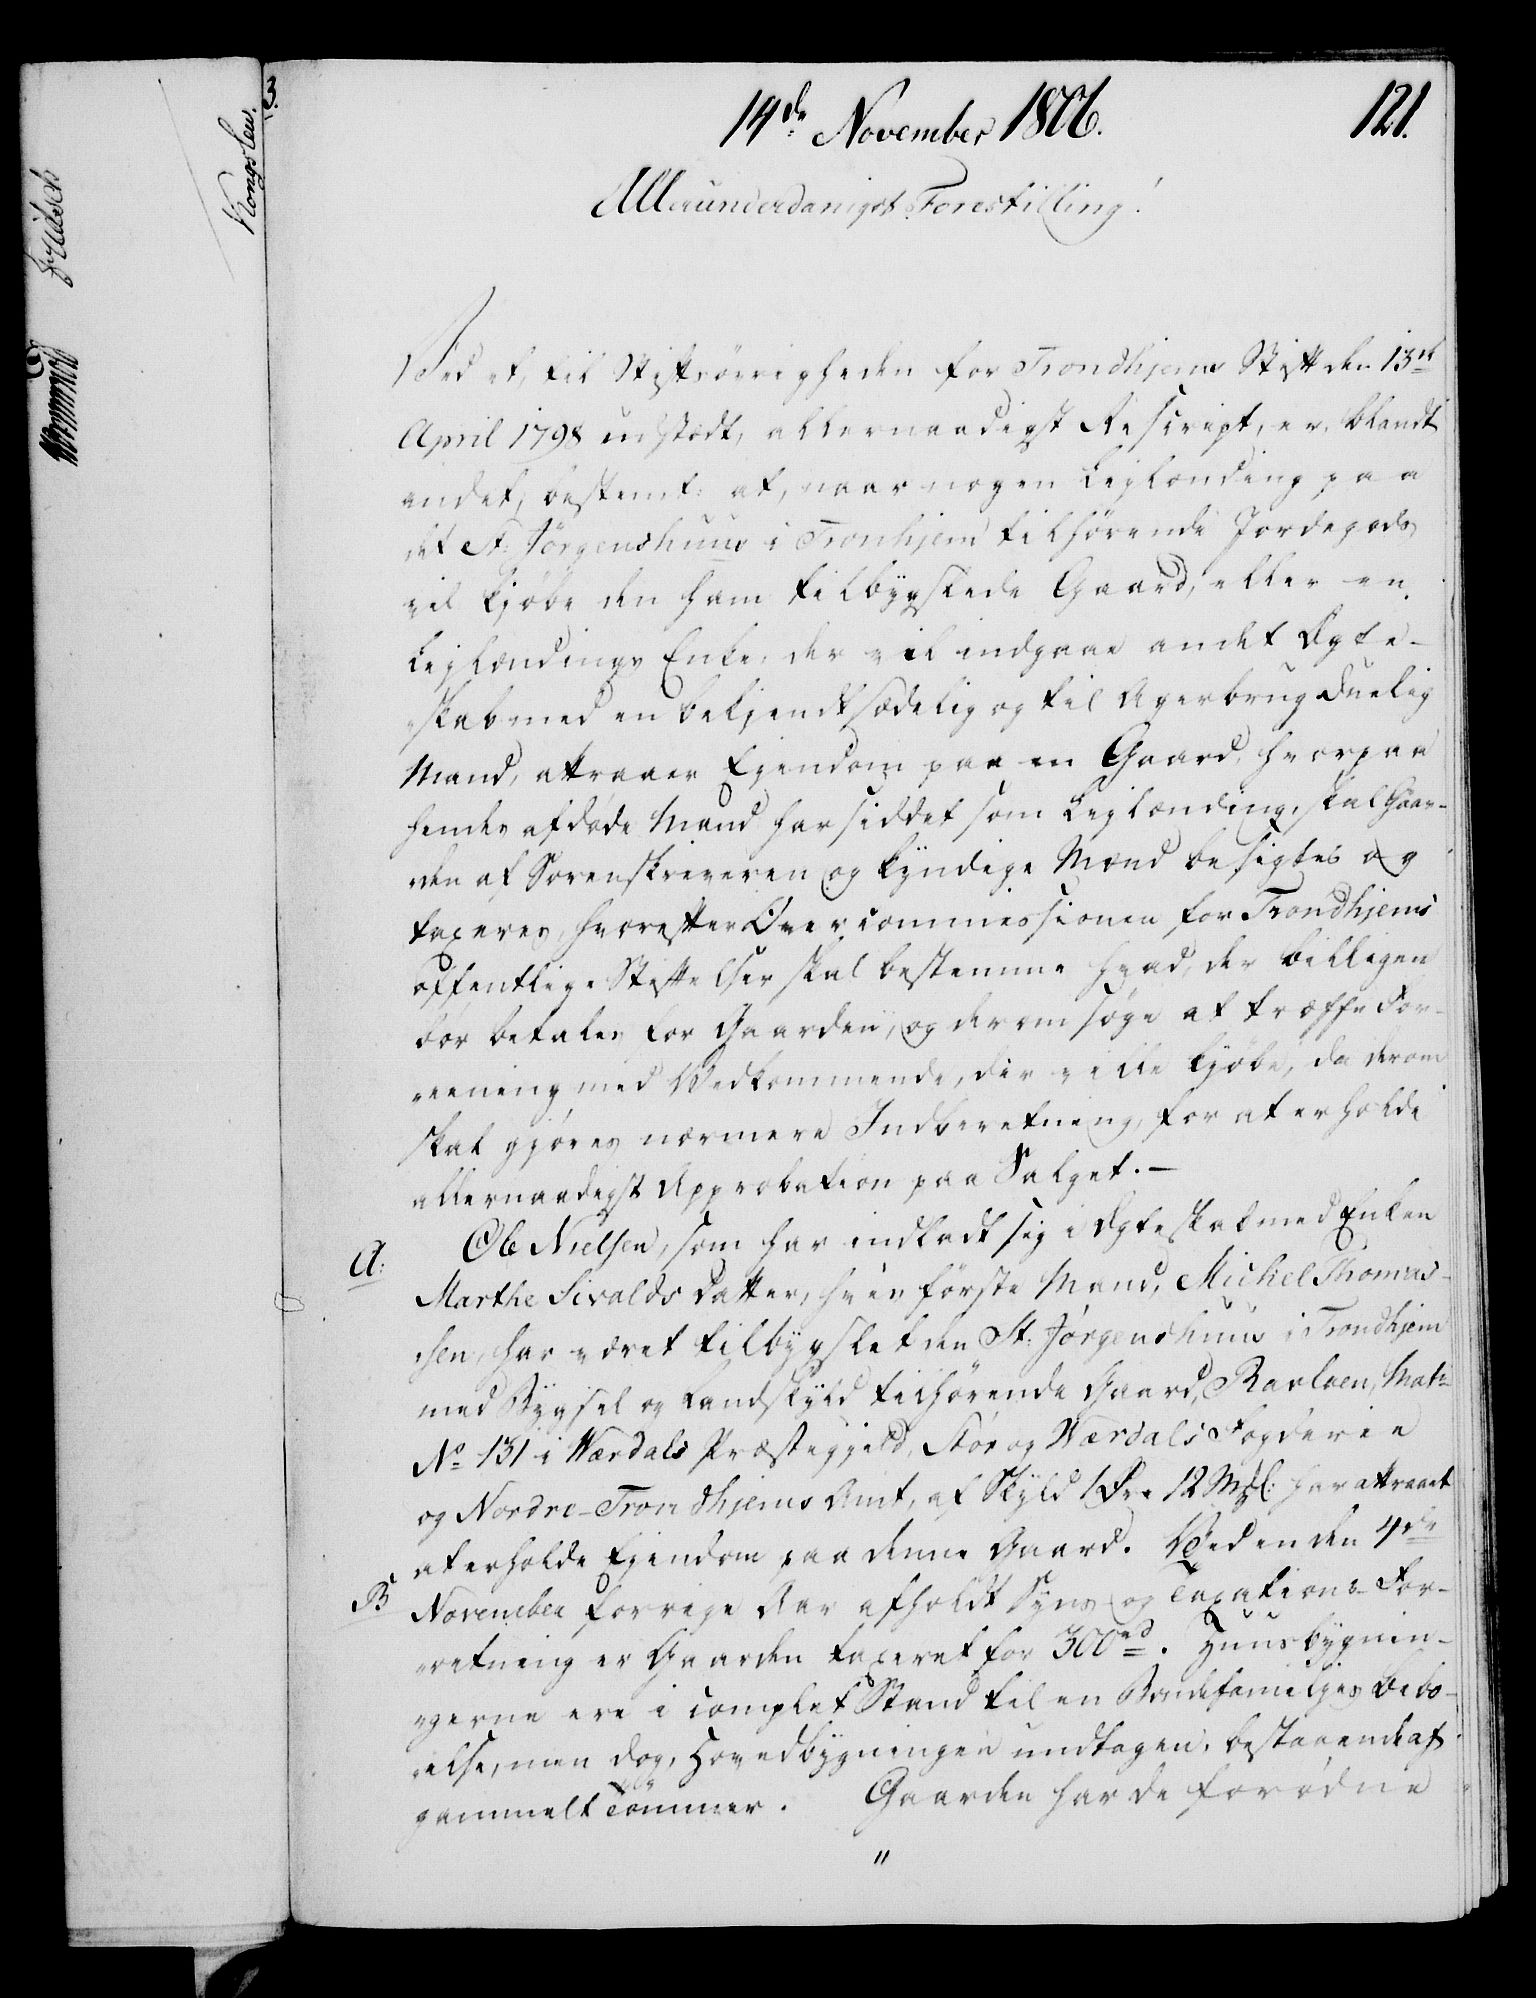 14de November 1806.
121.
Allerunderdanigst Forestilling!
Ved et, til Stiftsøvrigheden for Trondhjems Stift den 13de
April 1798 udstædt, allernaadigst Rescript, er, blandt
andet, bestemt: at, naar nogen Leilænding paa
det St: Jørgenshuus i Tronhjem tilhørende Jordegods
vil kjøbe den ham tilbygslede Gaard, eller en
Leilændings Enke, der vil indgaae andet Ægte-
skab med en bekjendt sædelig og til Agerbrug duelig
Mand, attraaer Eiendom paa en Gaard, hvorpaa
hendes afdøde Mand har siddet som Leilænding, skal Gaar-
den af Sorenskriveren og kyndige Mænd besigtes og
taxeres, hvorefter Overcommissionen for Trondhjems
offentlige Stiftelser skal bestemme hvad, der billigen
bør betales for Gaarden, og derom søge at træffe For-
eening med Vedkommende, der ville kjøbe, da derom
skal gjøres nærmere Indberetning, for at erholde
allernaadigst Approbation paa Salget.—
A: Ole Nielsen, som har indladt sig i Ægteskab med Enken
Marthe Sivalds Datter, hvis første Mand, Michel Thomas-
sen, har været tilbygslet den St: Jørgenshuus i Trondhjem
med Bygsel og Landskyld tilhørende Gaard, Ravloen, Matr
No 131 i Værdals Præstegjeld, Stør og Værdals Fogderie
og Nordre-Trondhjems Amt, af Skyld 1 Øre 12 Mkl: har attraaet
at erholde Eiendom paa denne Gaard. Ved en den 4de
B November forrige Aar afholdt Syns- og Taxations-For-
retning er Gaarden taxeret for 300rd. Huusbygnin-
gerne ere i complet Stand til en Bondefamiljes Bebo-
else, men dog, Hovedbygningen undtagen, bestaaende af
gammelt Tömmer. Gaarden har de fornødne
"
3.
Kongsben.
Fritsch